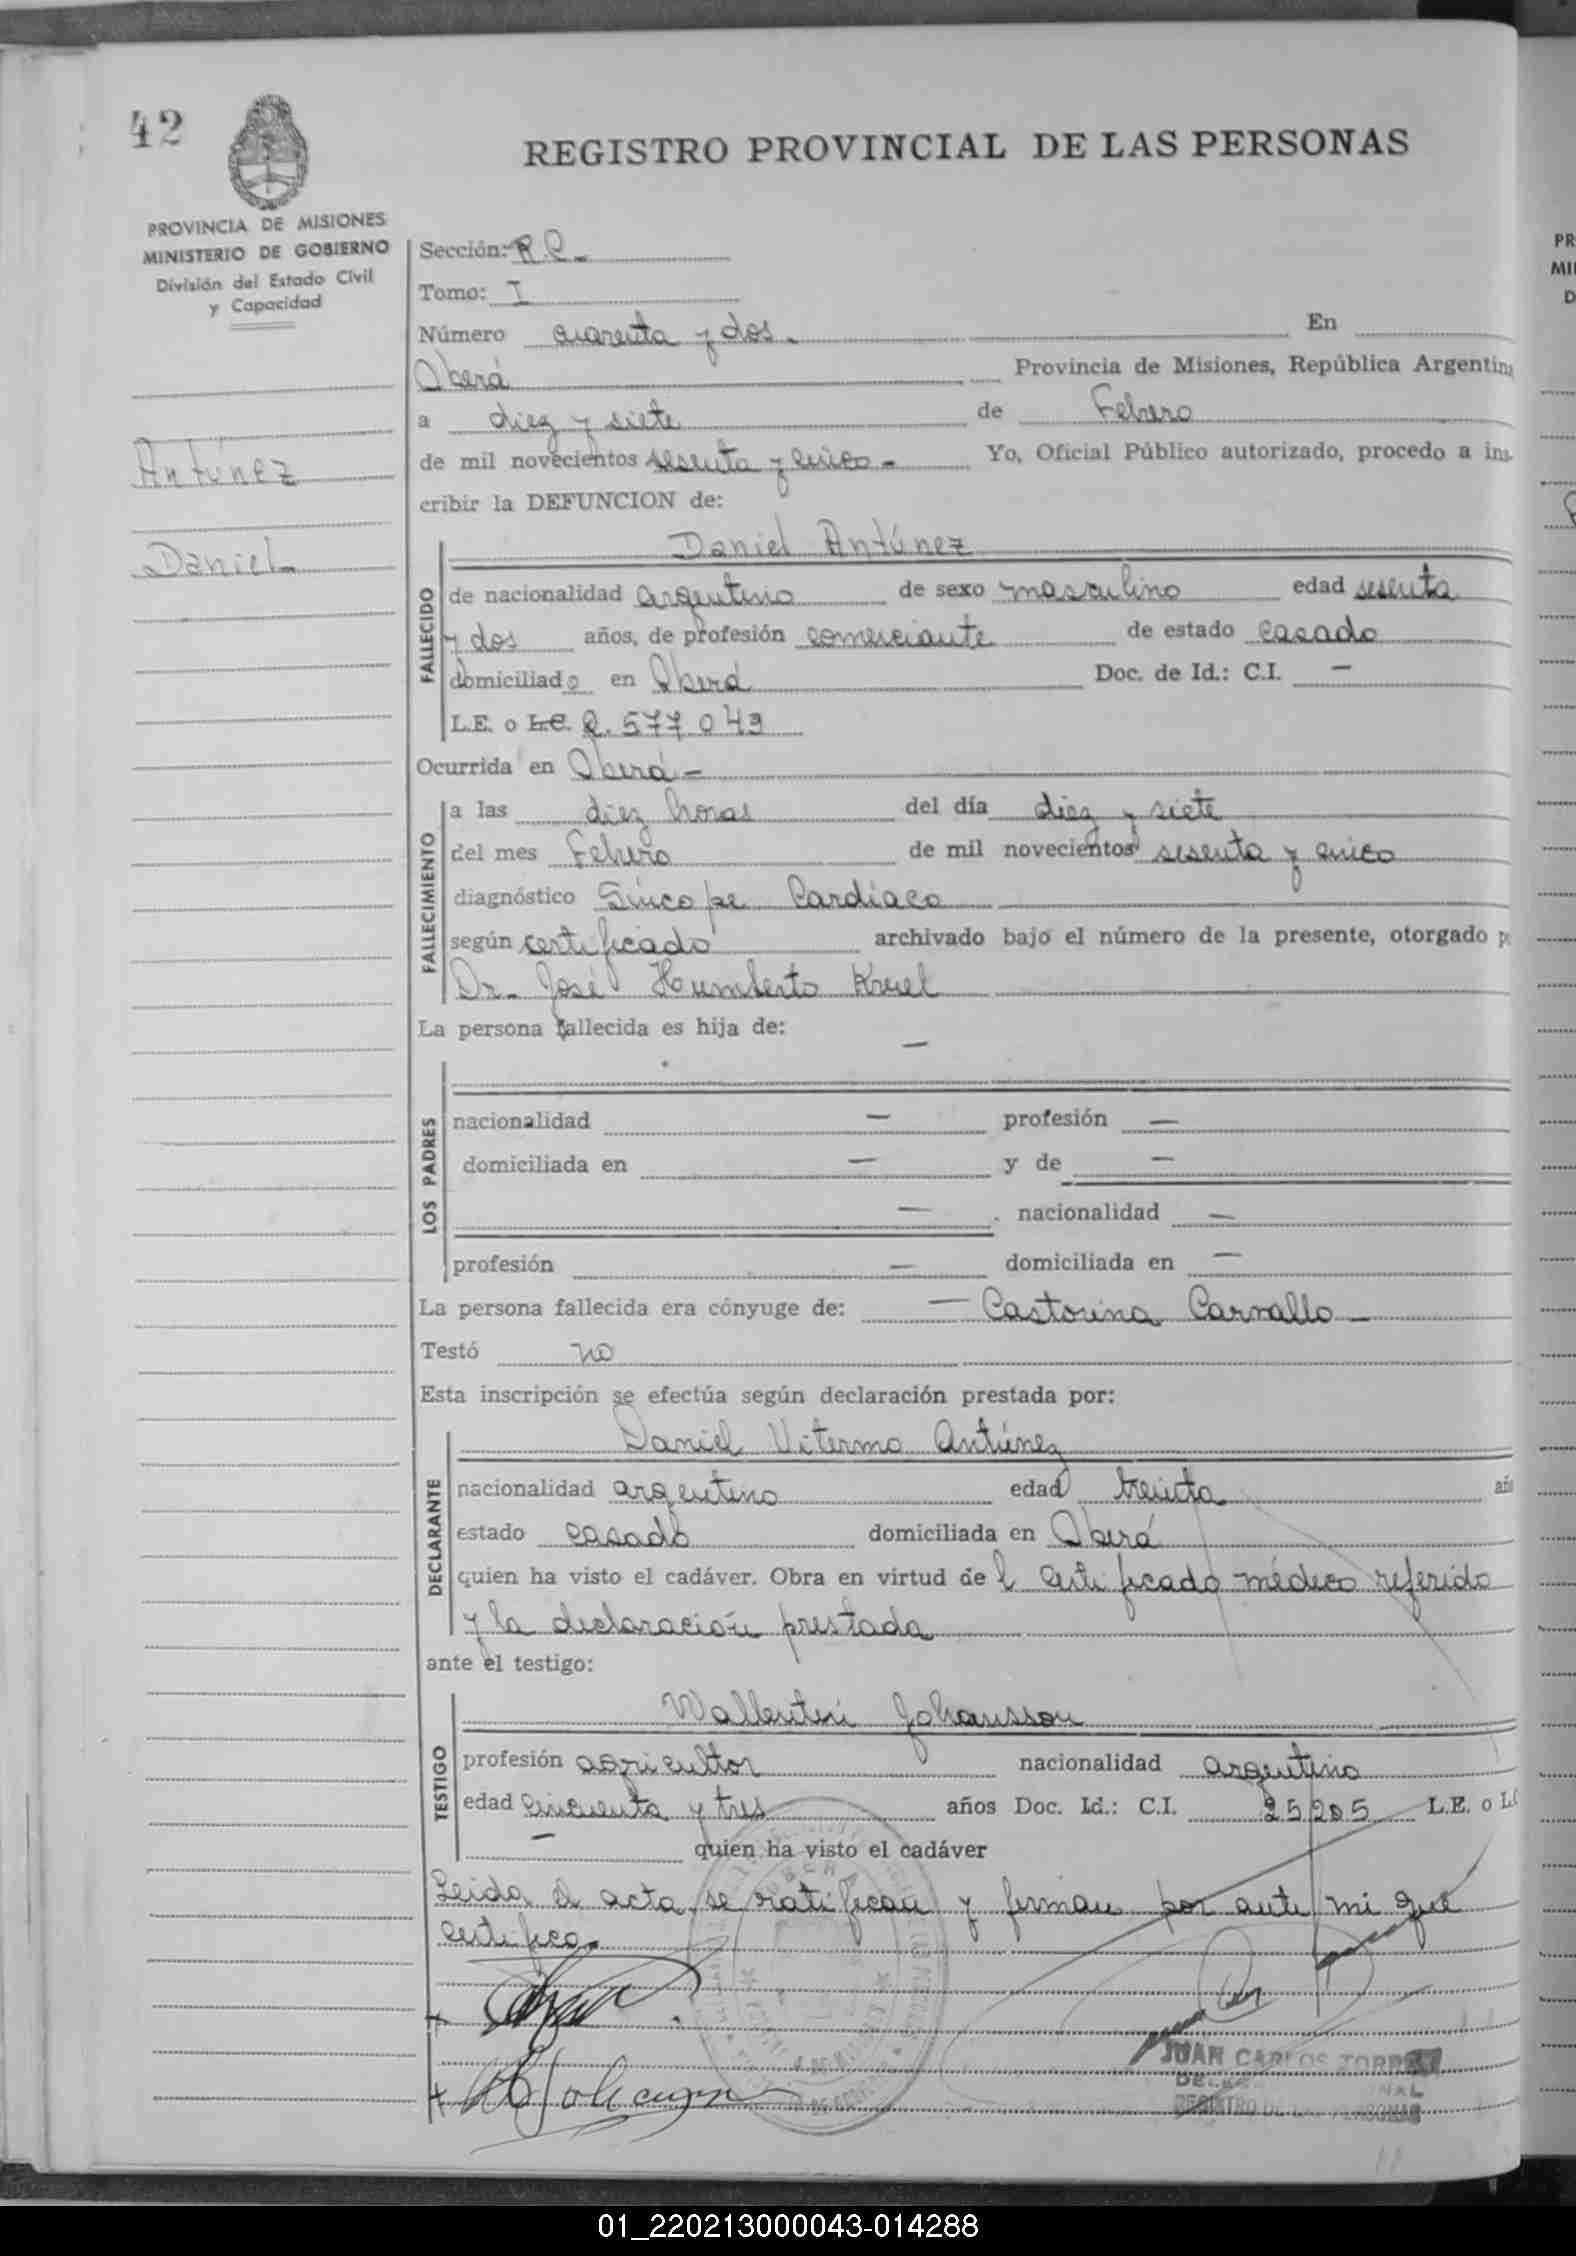 42
REGISTRO PROVINCIAL DE LAS PERSONAS
PROVINCIA DE MISIONES
MINISTERIO DE GOBIERNO
División del Estado Civil
y Capacidad
Sección: R.C.
Tomo: I
Número cuarenta y dos. En
Oberá Provincia de Misiones, República Argentina
a diez y siete de Febrero
de mil novecientos sesenta y cinco - Yo, Oficial Público autorizado, procedo a ins-
cribir la DEFUNCION de:
Antúnez
Daniel
FALLECIDO
Daniel Antúnez
de nacionalidad argentino de sexo masculino edad sesenta
y dos años, de profesión comerciante de estado casado
domiciliado en Oberá Doc. de Id.: C.I. —
L.E. o L.C. 2.577.049
Ocurrida en Oberá -
FALLECIMIENTO
a las diez horas del día diez y siete
del mes Febrero de mil novecientos sesenta y cinco
diagnóstico Síncope Cardíaco
según certificado archivado bajo el número de la presente, otorgado
Dr. José Humberto Kruel
La persona fallecida es hija de:
—
LOS PADRES
nacionalidad — profesión —
domiciliada en — y de —
— . nacionalidad —
profesión — domiciliada en —
La persona fallecida era cónyuge de: — Castorina Carvallo -
Testó no
Esta inscripción se efectúa según declaración prestada por:
DECLARANTE
Daniel Vitermo Antúnez
nacionalidad argentino edad treinta
estado casado domiciliada en Oberá
quien ha visto el cadáver. Obra en virtud del certificado médico referido
y la declaración prestada
ante el testigo:
TESTIGO
Wallentin Johansson
profesión agricultor nacionalidad argentino
edad cincuenta y tres años Doc. Id.: C.I. 25205 L.E. o
— quien ha visto el cadáver
Leida el acta, se ratifican y firman por ante mi que
certifico.
JUAN CARLOS TORRES
REGISTRO DE LAS PERSONAS
01_220213000043-014288